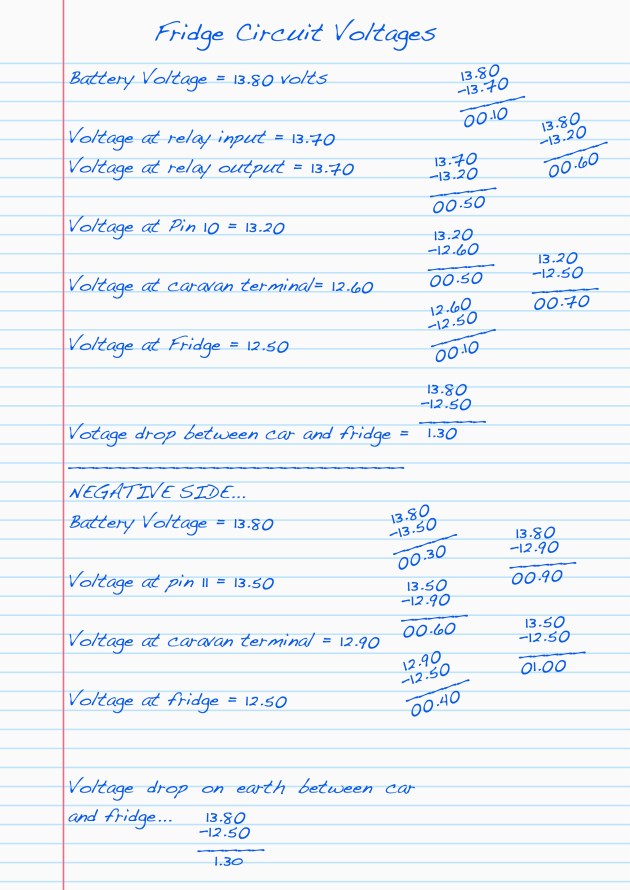 Fridge Circuit Voltages
Battery Voltage = 13.80 volts
13.80
-13.70
00.10
Voltage at relay input = 13.70
13.80
-13.20
00.60
Voltage at relay output = 13.70
13.70
-13.20
00.50
Voltage at Pin 10 = 13.20
13.20
-12.60
00.50
Voltage at caravan terminal= 12.60
13.20
-12.50
00.70
12.60
-12.50
00.10
Voltage at Fridge = 12.50
13.80
-12.50
1.30
Votage drop between car and fridge =
NEGATIVE SIDE...
Battery Voltage = 13.80
13.80
-13.50
00.30
13.80
-12.90
00.90
Voltage at pin 11 = 13.50
13.50
-12.90
00.60
13.50
-12.50
01.00
Voltage at caravan terminal = 12.90
12.90
-12.50
00.40
Voltage at fridge = 12.50
Voltage drop on earth between car
and fridge...
13.80
-12.50
1.30